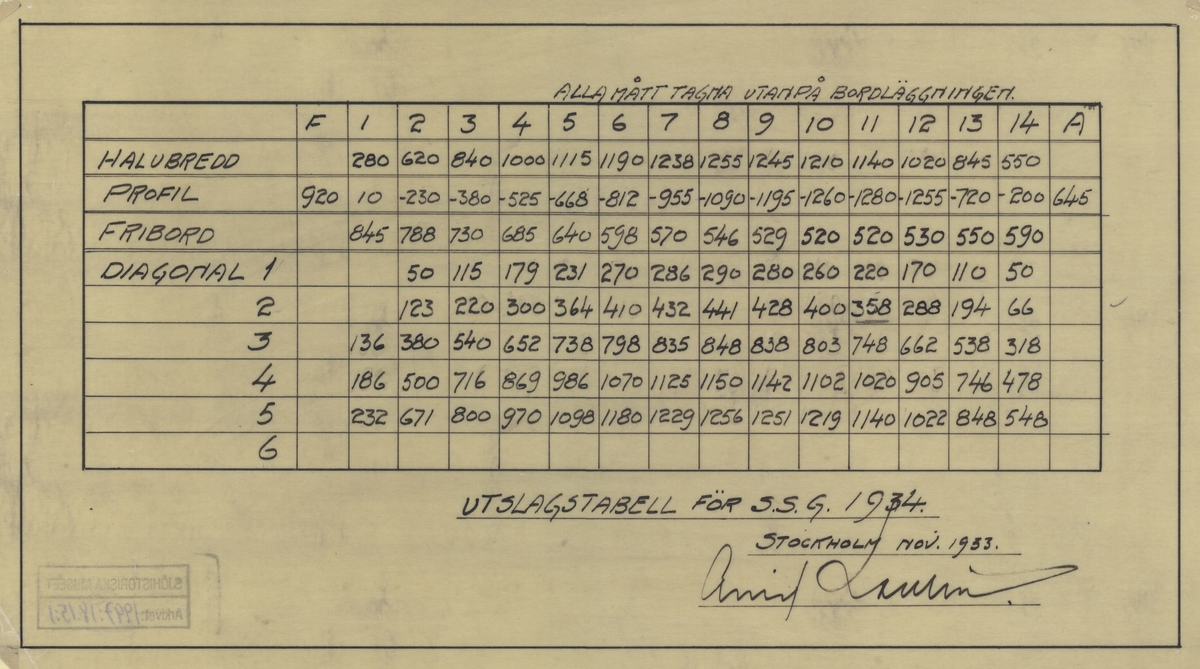 ALLA MÅTT TAGNA UTANPÅ BORDLÄGGNINGEN.
F 1 2 3 4 5 6 7 8 9 10 11 12 13 14 A
HALVBREDD 280 620 840 1000 1115 1190 1238 1255 1245 1210 1140 1020 845 550
PROFIL 920 10 -230 -380 -525 -668 -812 -955 -1090 -1195 -1260 -1280 -1255 -720 -200 645
FRIBORD 845 788 730 685 640 598 570 546 529 520 520 530 550 590
DIAGONAL 1 50 115 179 231 270 286 290 280 260 220 170 110 50
2 123 220 300 364 410 432 441 428 400 358 288 194 66
3 136 380 540 652 738 798 835 848 838 803 748 662 538 318
4 186 500 716 869 986 1070 1125 1150 1142 1102 1020 905 746 478
5 232 671 800 970 1098 1180 1229 1256 1251 1219 1140 1022 848 548
6
UTSLAGSTABELL FÖR S.S.G. 1934.
STOCKHOLM NOV. 1933.
Arvid Laurin.
SJÖHISTORISKA MUSEET
Arkivet: 1997:18:15:1